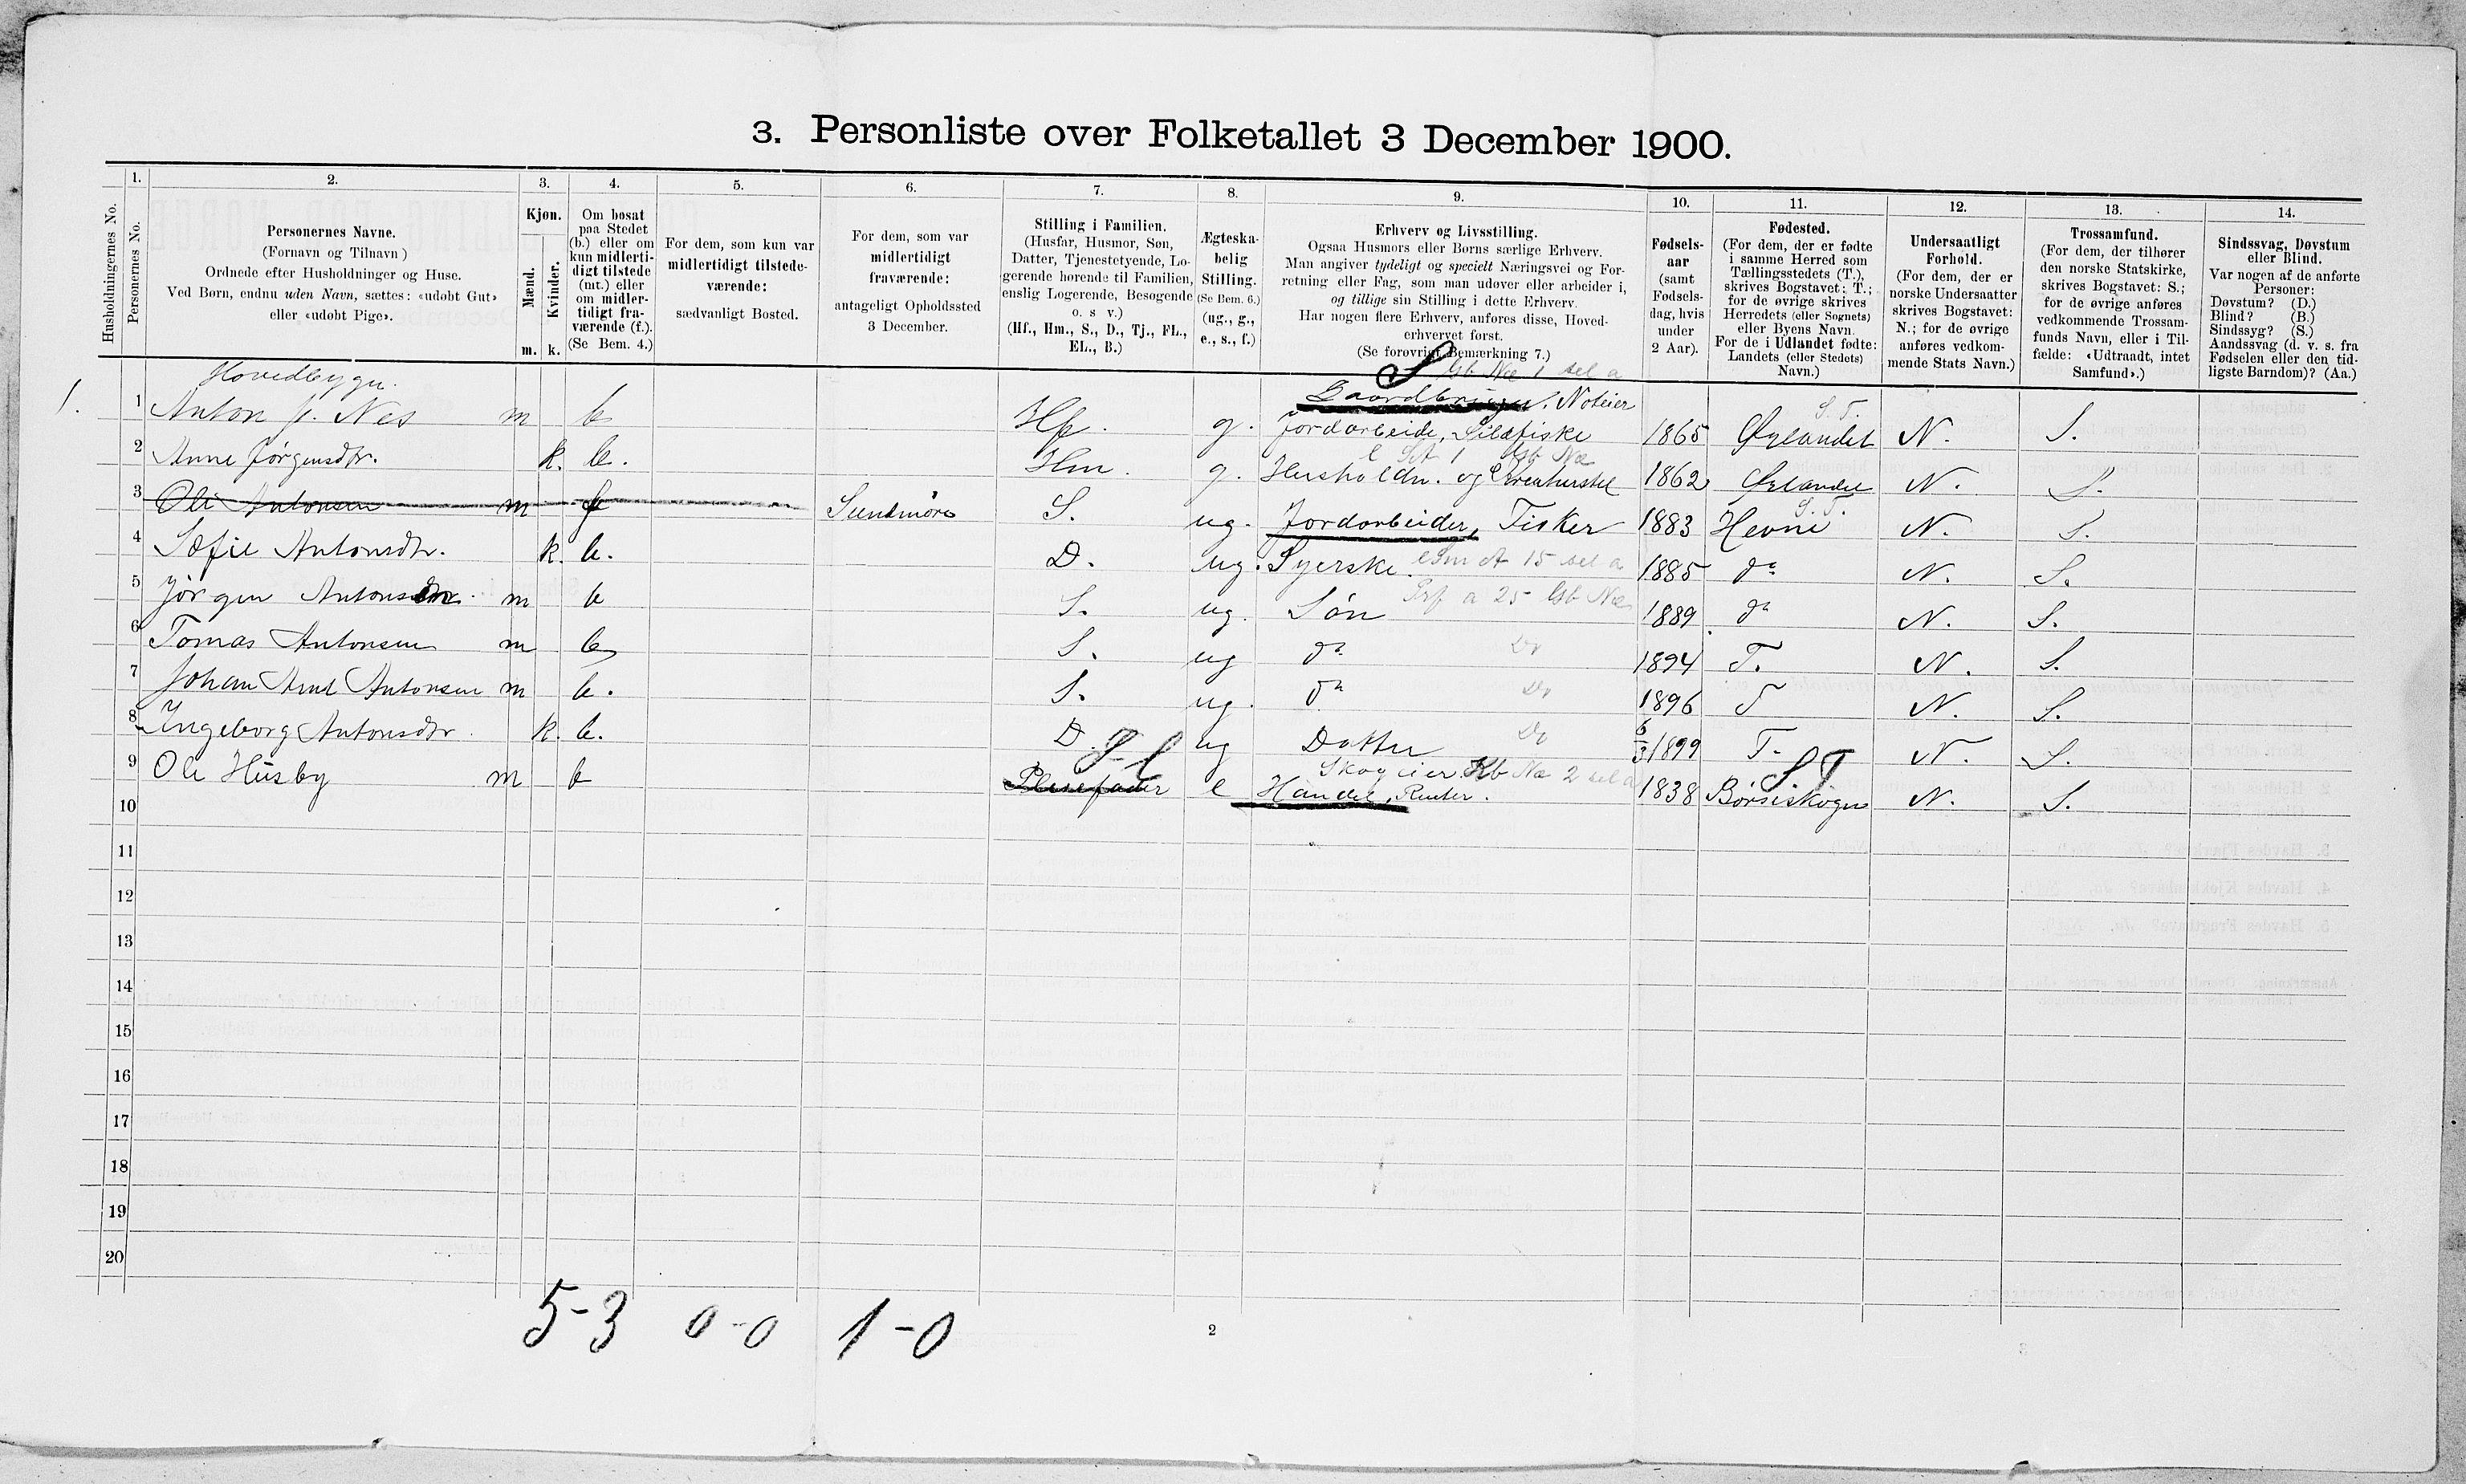 3. Personliste over Folketallet 3 December 1900.
1. 2. 3. 4. 5. 6. 7. 8. 9. 10. 11. 12. 13. 14.
Husholdningernes No.
Personernes No.
Personernes Navne.
(Fornavn og Tilnavn)
Ordnede efter Husholdninger og Huse.
Ved Børn, endnu uden Navn, sættes: «udøbt Gut»
eller «udøbt Pige».
Kjøn.
Mænd.
Kvinder.
m. k.
Om bosat
paa Stedet
(b.) eller om
kun midlerti-
digt tilstede
(mt.) eller
om midler-
tidigt fra-
værende (f.).
(Se Bem. 4.)
For dem, som kun var
midlertidigt tilstede-
værende:
sædvanligt Bosted.
For dem, som var
midlertidigt
fraværende:
antageligt Opholdssted
3 December.
Stilling i Familien.
(Husfar, Husmor, Søn,
Datter, Tjenestetyende, Lo-
gerende hørende til Familien,
enslig Logerende, Besøgende
o. s v.)
(Hf., Hm., S., D., Tj., FL.,
EL., B.)
Ægteska-
belig
Stilling.
(Se Bem. 6.)
(ug., g.,
e., s., f.)
Erhverv og Livsstilling.
Ogsaa Husmors eller Børns særlige Erhverv.
Man angiver tydeligt og specielt Næringsvei og For-
retning eller Fag, som man udøver eller arbeider i,
og tillige sin Stilling i dette Erhverv.
Har nogen flere Erhverv, anføres disse, Hoved-
erhvervet først.
(Se forøvrigt Bemærkning 7.)
Fødsels-
aar
(samt
Fødsels-
dag, hvis
under
2 Aar).
Fødested.
(For dem, der er fødte
i samme Herred som
Tællingsstedets (T.),
skrives Bogstavet: T.;
for de øvrige skrives
Herredets (eller Sognets)
eller Byens Navn.
For de i Udlandet fødte:
Landets (eller Stedets)
Navn.)
Undersaatligt
Forhold.
(For dem, der er
norske Undersaatter
skrives Bogstavet:
N.; for de øvrige
anføres vedkom-
mende Stats Navn.)
Trossamfund.
(For dem, der tilhører
den norske Statskirke,
skrives Bogstavet: S.;
for de øvrige anføres
vedkommende Trossam-
funds Navn, eller i Til-
fælde: «Udtraadt, intet
Samfund».)
Sindssvag, Døvstum
eller Blind.
Var nogen af de anførte
Personer:
Døvstum? (D.)
Blind? (B.)
Sindssyg? (S.)
Aandssvag (d. v. s. fra
Fødselen eller den tid-
ligste Barndom)? (Aa.)
Hovedbygn. S Gb Næ 1 sel a
Gaardbruger. Noteier
S. T.
1. 1 Anton J. Nes m b Hf. g. Jordarbeide, Sildfiske 1865 Ørlandet N. S.
2 Anne Jørgensdtr. k. b. Hm. g. Husholdn. og Kreaturstel 1862 Ørlandet N. S.
S. T.
3 Ole Antonsen m f Sundmøre S. ug. Jordarbeider, Fisker 1883 Hevne N. S.
4 Sofie Antonsdtr. k. b. D. ug. Syerske. 15 sel a 1885 do N. S.
5 Jørgen Antonsen m b S. ug. Søn a 25 Gb Næ 1889 do N. S.
6 Tomas Antonsen m b S. ug do Do 1894 T. N. S.
7 Johan Arnt Antonsen m b. S. ug. do Do 1896 T N. S.
8 Ingeborg Antonsdtr. k. b. D. ug Datter Do 6/3 1899 T. N. S.
Skogeier Næ 2 sel a S T
9 Ole Husby m b Pleiefader e Handel, Renter. 1838 Børseskogn N. S.
10
11
12
13
14
15
16
17
18
19
20
5-3 0-0 1-0
2